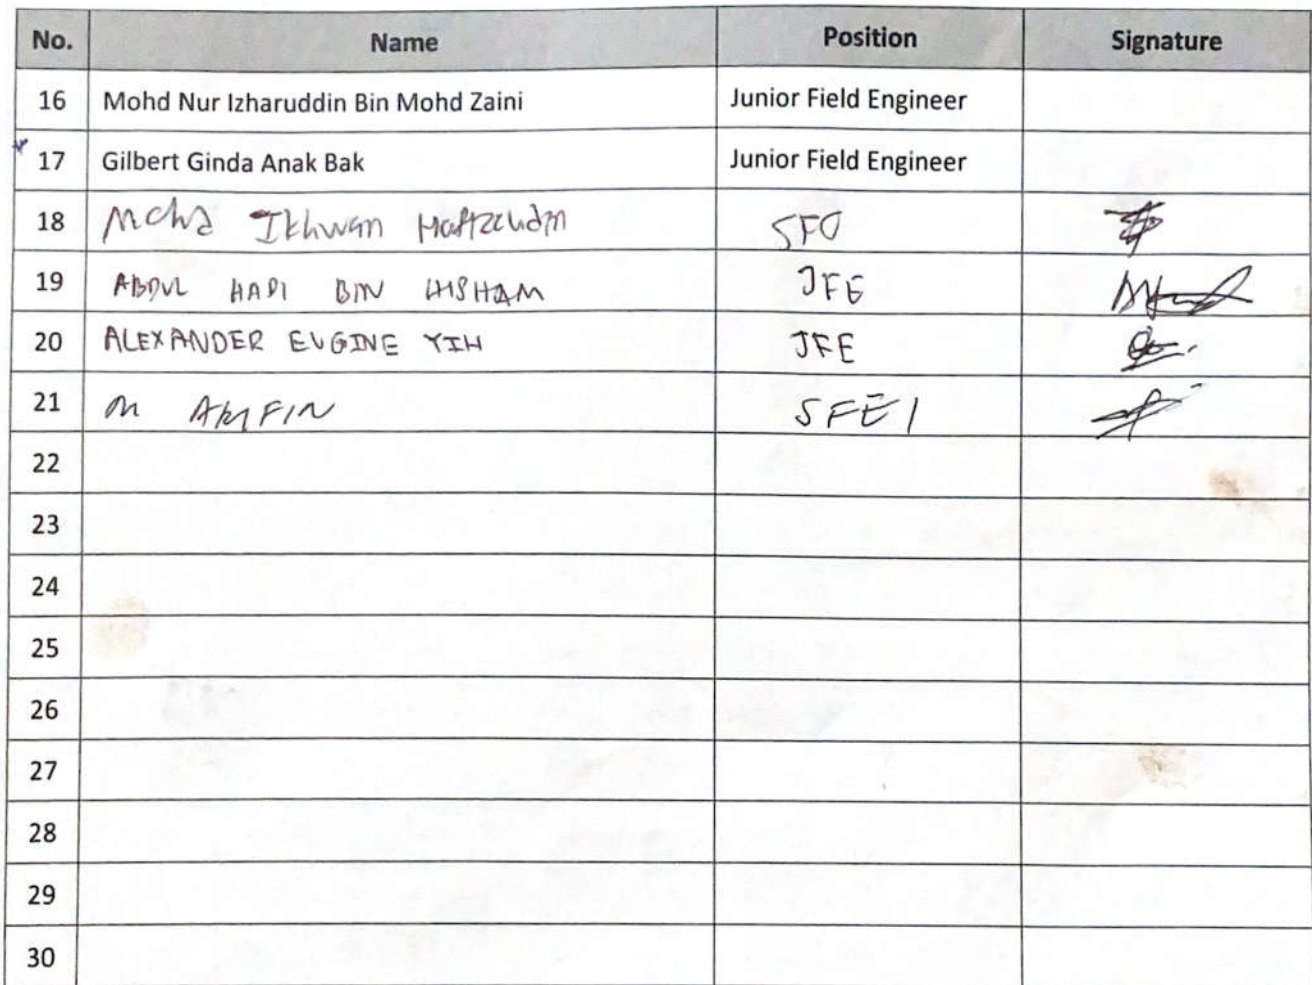 No. Name Position Signature
16 Mohd Nur Izharuddin Bin Mohd Zaini Junior Field Engineer
17 Gilbert Ginda Anak Bak Junior Field Engineer
18 Mohd Ikhwan SFO
19 ABDUL HADI BIN HISHAM JFE
20 ALEXANDER EUGINE YIH JFE
21 M ARIFIN SFE 1
22
23
24
25
26
27
28
29
30